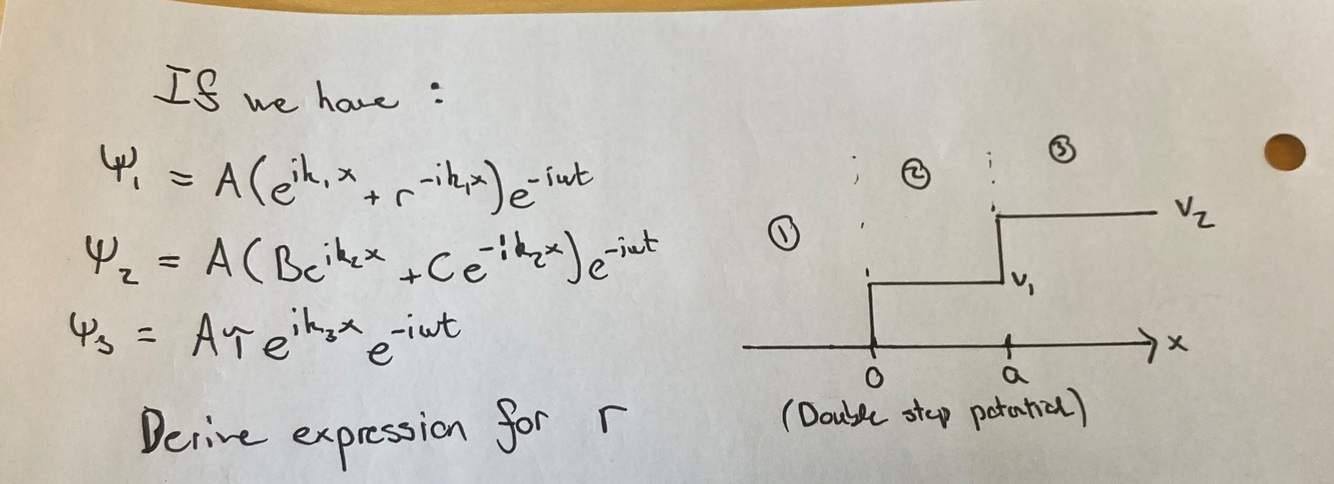 If we have :
ψ₁ = A(e^{ik₁x} + r^{-ik₁x})e^{-iωt}
ψ₂ = A(Be^{ik₂x} + Ce^{-ik₂x})e^{-iωt}
ψ₃ = Aτe^{ik₃x} e^{-iωt}
Derive expression for r
① ② ③
V₂
V₁
x
0 a
(Double step potential)